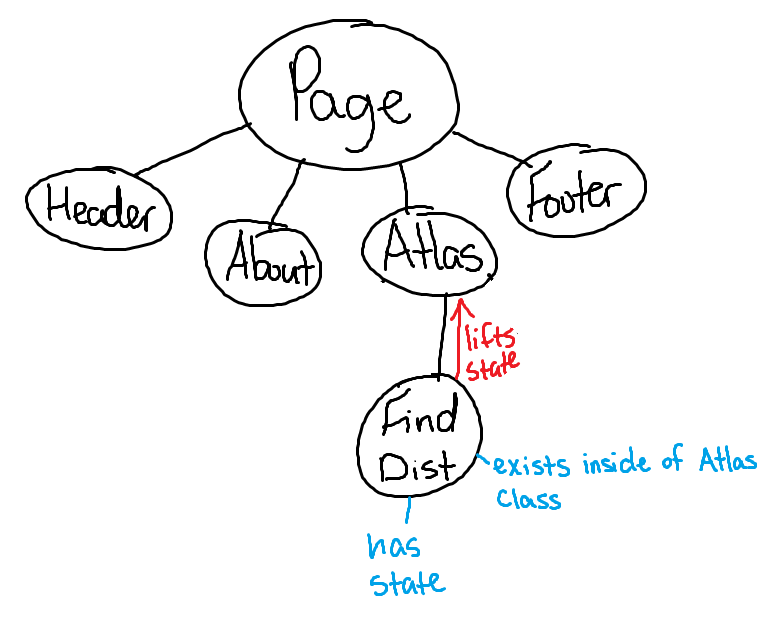 Page
Header
About
Atlas
Footer
lifts
state
Find
Dist
exists inside of Atlas
Class
has
state